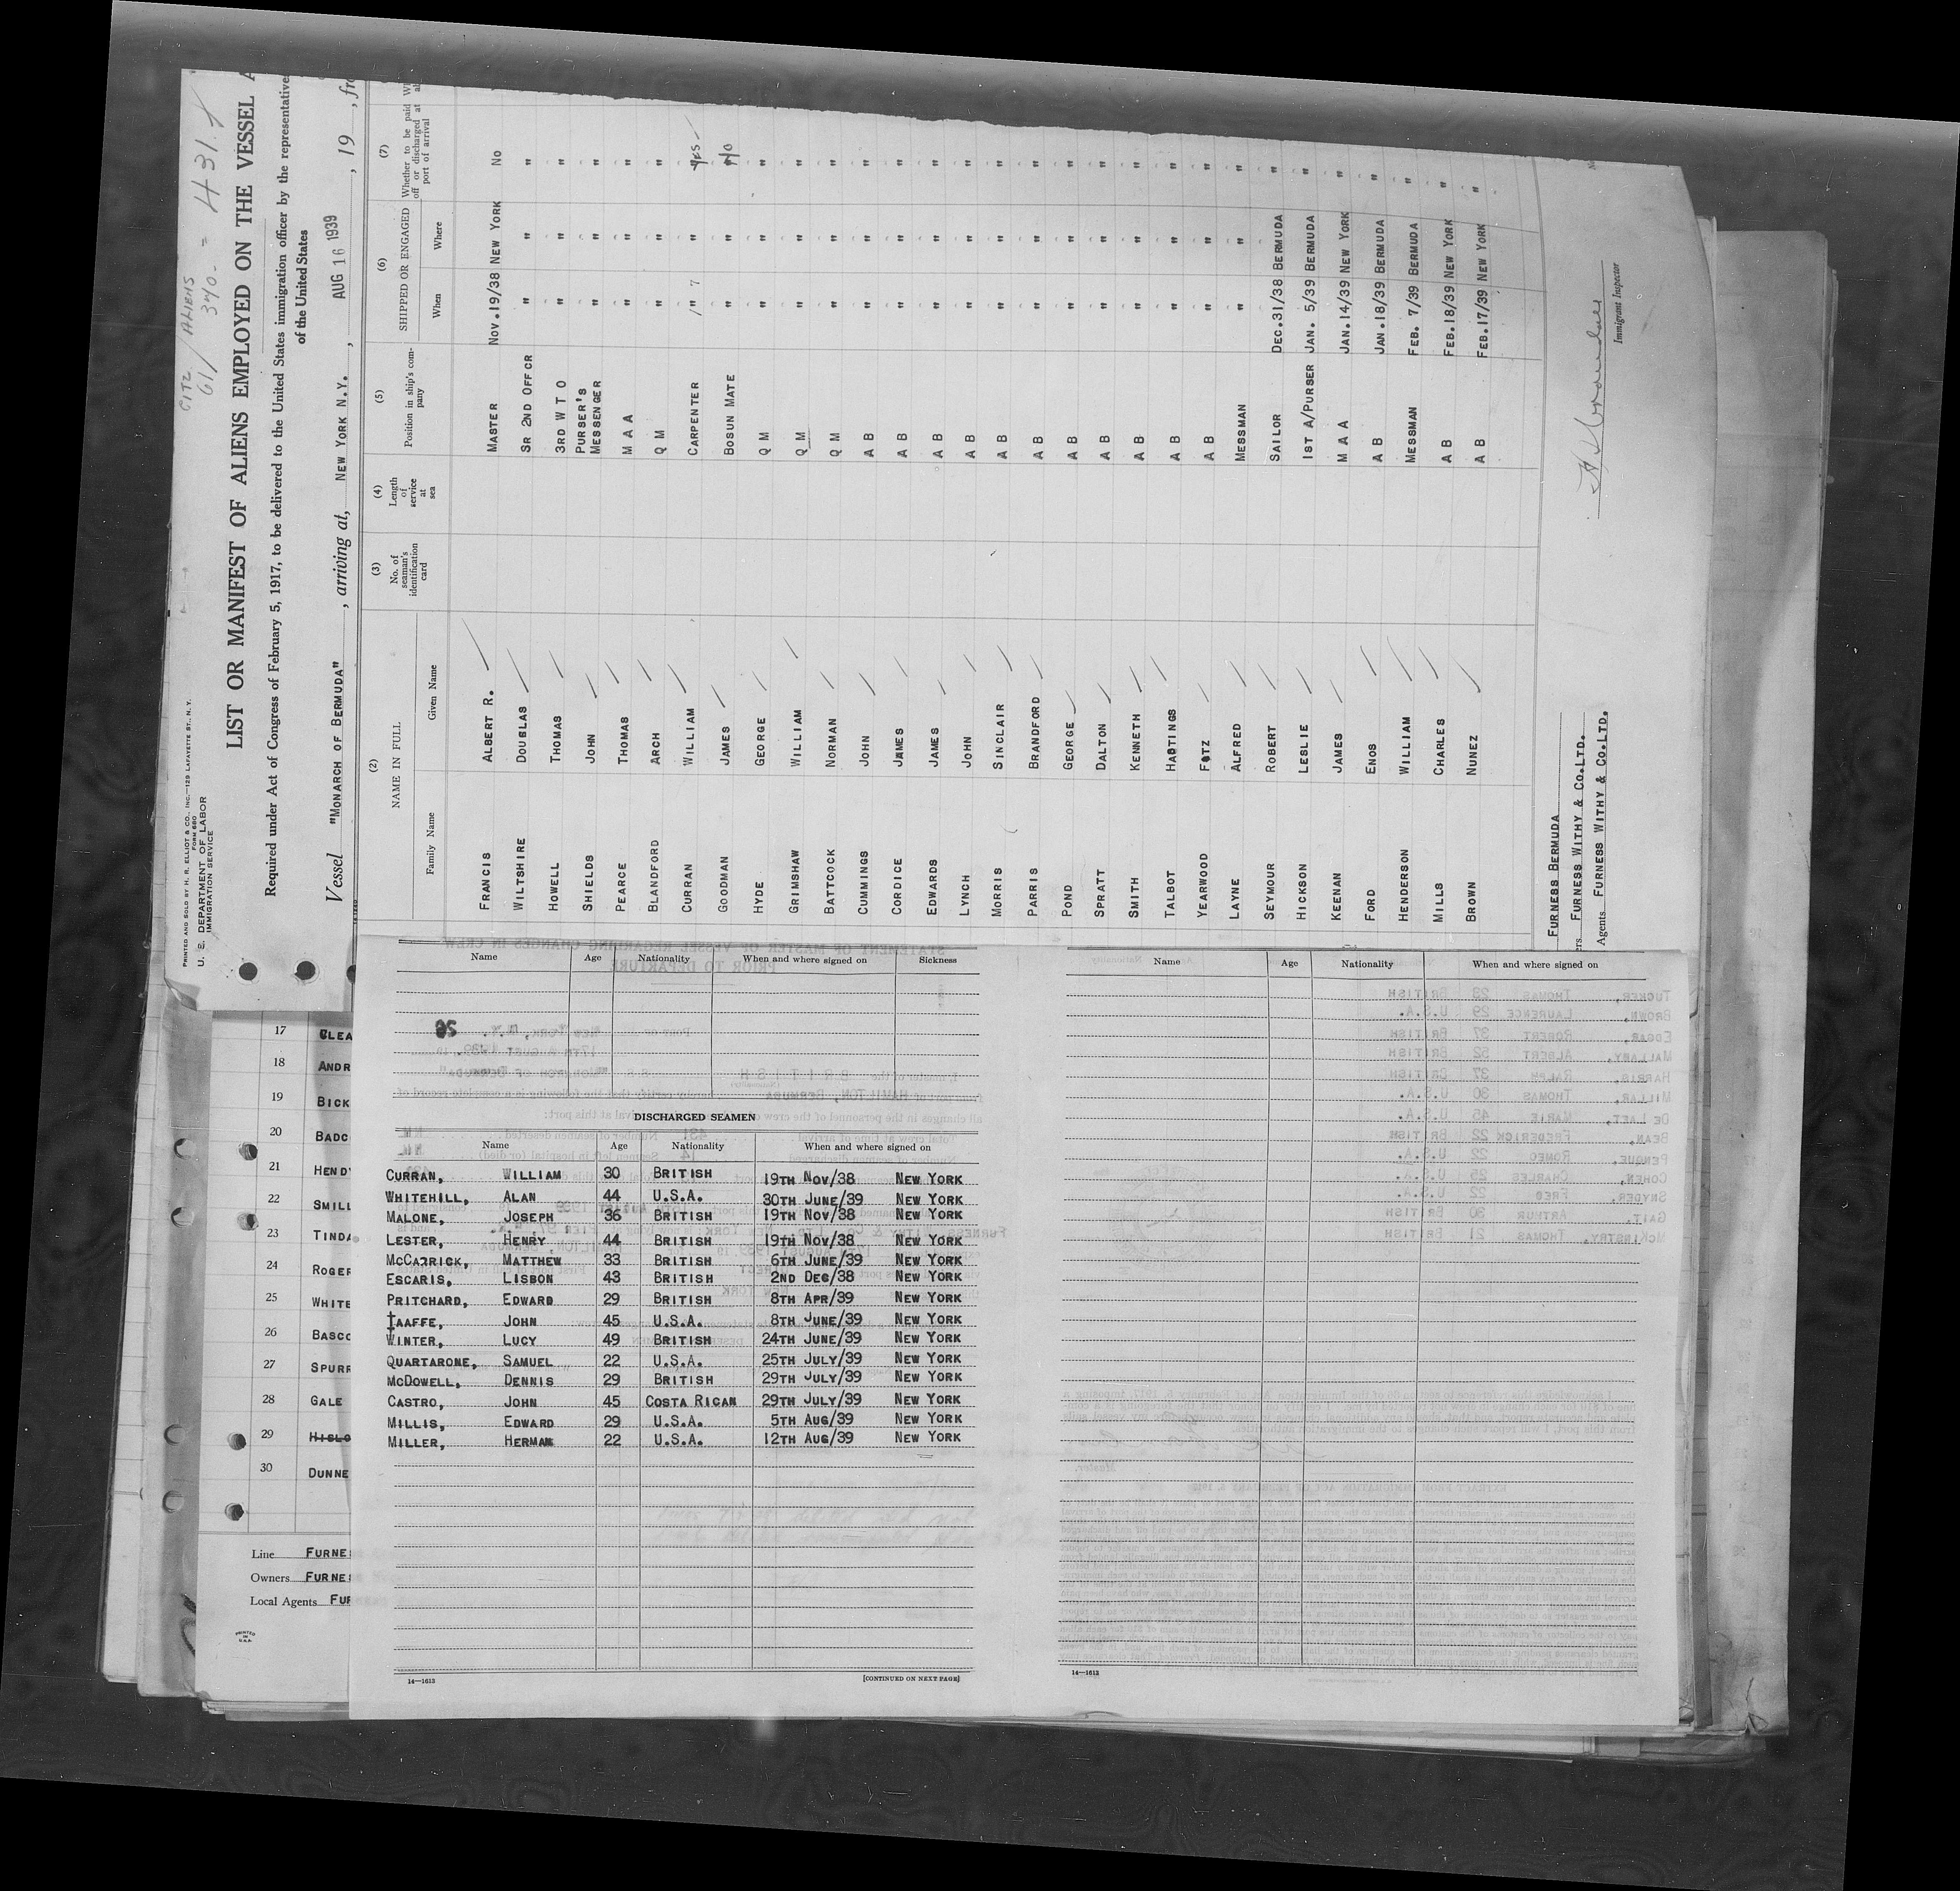 PRINTED AND SOLD BY H. R. ELLIOT & CO., INC.—129 LAFAYETTE ST., N. Y.
FORM 680
U. S. DEPARTMENT OF LABOR
IMMIGRATION SERVICE
CITZ / ALIENS
61 / 370 - = 431
LIST OR MANIFEST OF ALIENS EMPLOYED ON THE VESSEL A
Required under Act of Congress of February 5, 1917, to be delivered to the United States immigration officer by the representative
of the United States
Vessel "MONARCH OF BERMUDA", arriving at, NEW YORK N.Y., AUG 16 1939, 19 , fr
(2) (3) (4) (5) (6) (7)
NAME IN FULL No. of seaman's identification card Length of service at sea Position in ship's company SHIPPED OR ENGAGED Whether to be paid off or discharged at port of arrival
Family Name Given Name When Where
FRANCIS ALBERT R. MASTER NOV.19/38 NEW YORK NO
WILTSHIRE DOUGLAS SR 2ND OFFCR " " "
HOWELL THOMAS 3RD W T O " " "
SHIELDS JOHN PURSER'S MESSENGER " " "
PEARCE THOMAS M A A " " "
BLANDFORD ARCH Q M " " "
CURRAN WILLIAM CARPENTER " " yes
GOODMAN JAMES BOSUN MATE " " NO
HYDE GEORGE Q M " " "
GRIMSHAW WILLIAM Q M " " "
BATTCOCK NORMAN Q M " " "
CUMMINGS JOHN A B " " "
CORDICE JAMES A B " " "
EDWARDS JAMES A B " " "
LYNCH JOHN A B " " "
MORRIS SINCLAIR A B " " "
PARRIS BRANDFORD A B " " "
POND GEORGE A B " " "
SPRATT DALTON A B " " "
SMITH KENNETH A B " " "
TALBOT HASTINGS A B " " "
YEARWOOD FITZ A B " " "
LAYNE ALFRED MESSMAN " " "
SEYMOUR ROBERT SAILOR DEC.31/38 BERMUDA "
HICKSON LESLIE 1ST A/PURSER JAN. 5/39 BERMUDA "
KEENAN JAMES M A A JAN.14/39 NEW YORK "
FORD ENOS A B JAN.18/39 BERMUDA "
HENDERSON WILLIAM MESSMAN FEB. 7/39 BERMUDA "
MILLS CHARLES A B FEB.18/39 NEW YORK "
BROWN NUNEZ A B FEB.17/39 NEW YORK "
FURNESS BERMUDA
FURNESS WITHY & CO.LTD.
Agents FURNESS WITHY & CO.LTD.
Immigrant Inspector
17 CLEA
18 ANDR
19 BICK
20 BADC
21 HENDY
22 SMILL
23 TINDA
24 ROGER
25 WHITE
26 BASCO
27 SPURR
28 GALE
29 HISLO
30 DUNNE
Line FURNE
Owners FURNES
Local Agents FUR
PRINTED IN U.S.A.
Name Age Nationality When and where signed on Sickness
DISCHARGED SEAMEN
Name Age Nationality When and where signed on
CURRAN, WILLIAM 30 BRITISH 19TH NOV/38 NEW YORK
WHITEHILL, ALAN 44 U.S.A. 30TH JUNE/39 NEW YORK
MALONE, JOSEPH 36 BRITISH 19TH NOV/38 NEW YORK
LESTER, HENRY 44 BRITISH 19TH NOV/38 NEW YORK
MCCARRICK, MATTHEW 33 BRITISH 6TH JUNE/39 NEW YORK
ESCARIS, LISBON 43 BRITISH 2ND DEC/38 NEW YORK
PRITCHARD, EDWARD 29 BRITISH 8TH APR/39 NEW YORK
TAAFFE, JOHN 45 U.S.A. 8TH JUNE/39 NEW YORK
WINTER, LUCY 49 BRITISH 24TH JUNE/39 NEW YORK
QUARTARONE, SAMUEL 22 U.S.A. 25TH JULY/39 NEW YORK
MCDOWELL, DENNIS 29 BRITISH 29TH JULY/39 NEW YORK
CASTRO, JOHN 45 COSTA RICAN 29TH JULY/39 NEW YORK
MILLIS, EDWARD 29 U.S.A. 5TH AUG/39 NEW YORK
MILLER, HERMAN 22 U.S.A. 12TH AUG/39 NEW YORK
14—1613 [CONTINUED ON NEXT PAGE]
Name Age Nationality When and where signed on
14—1613